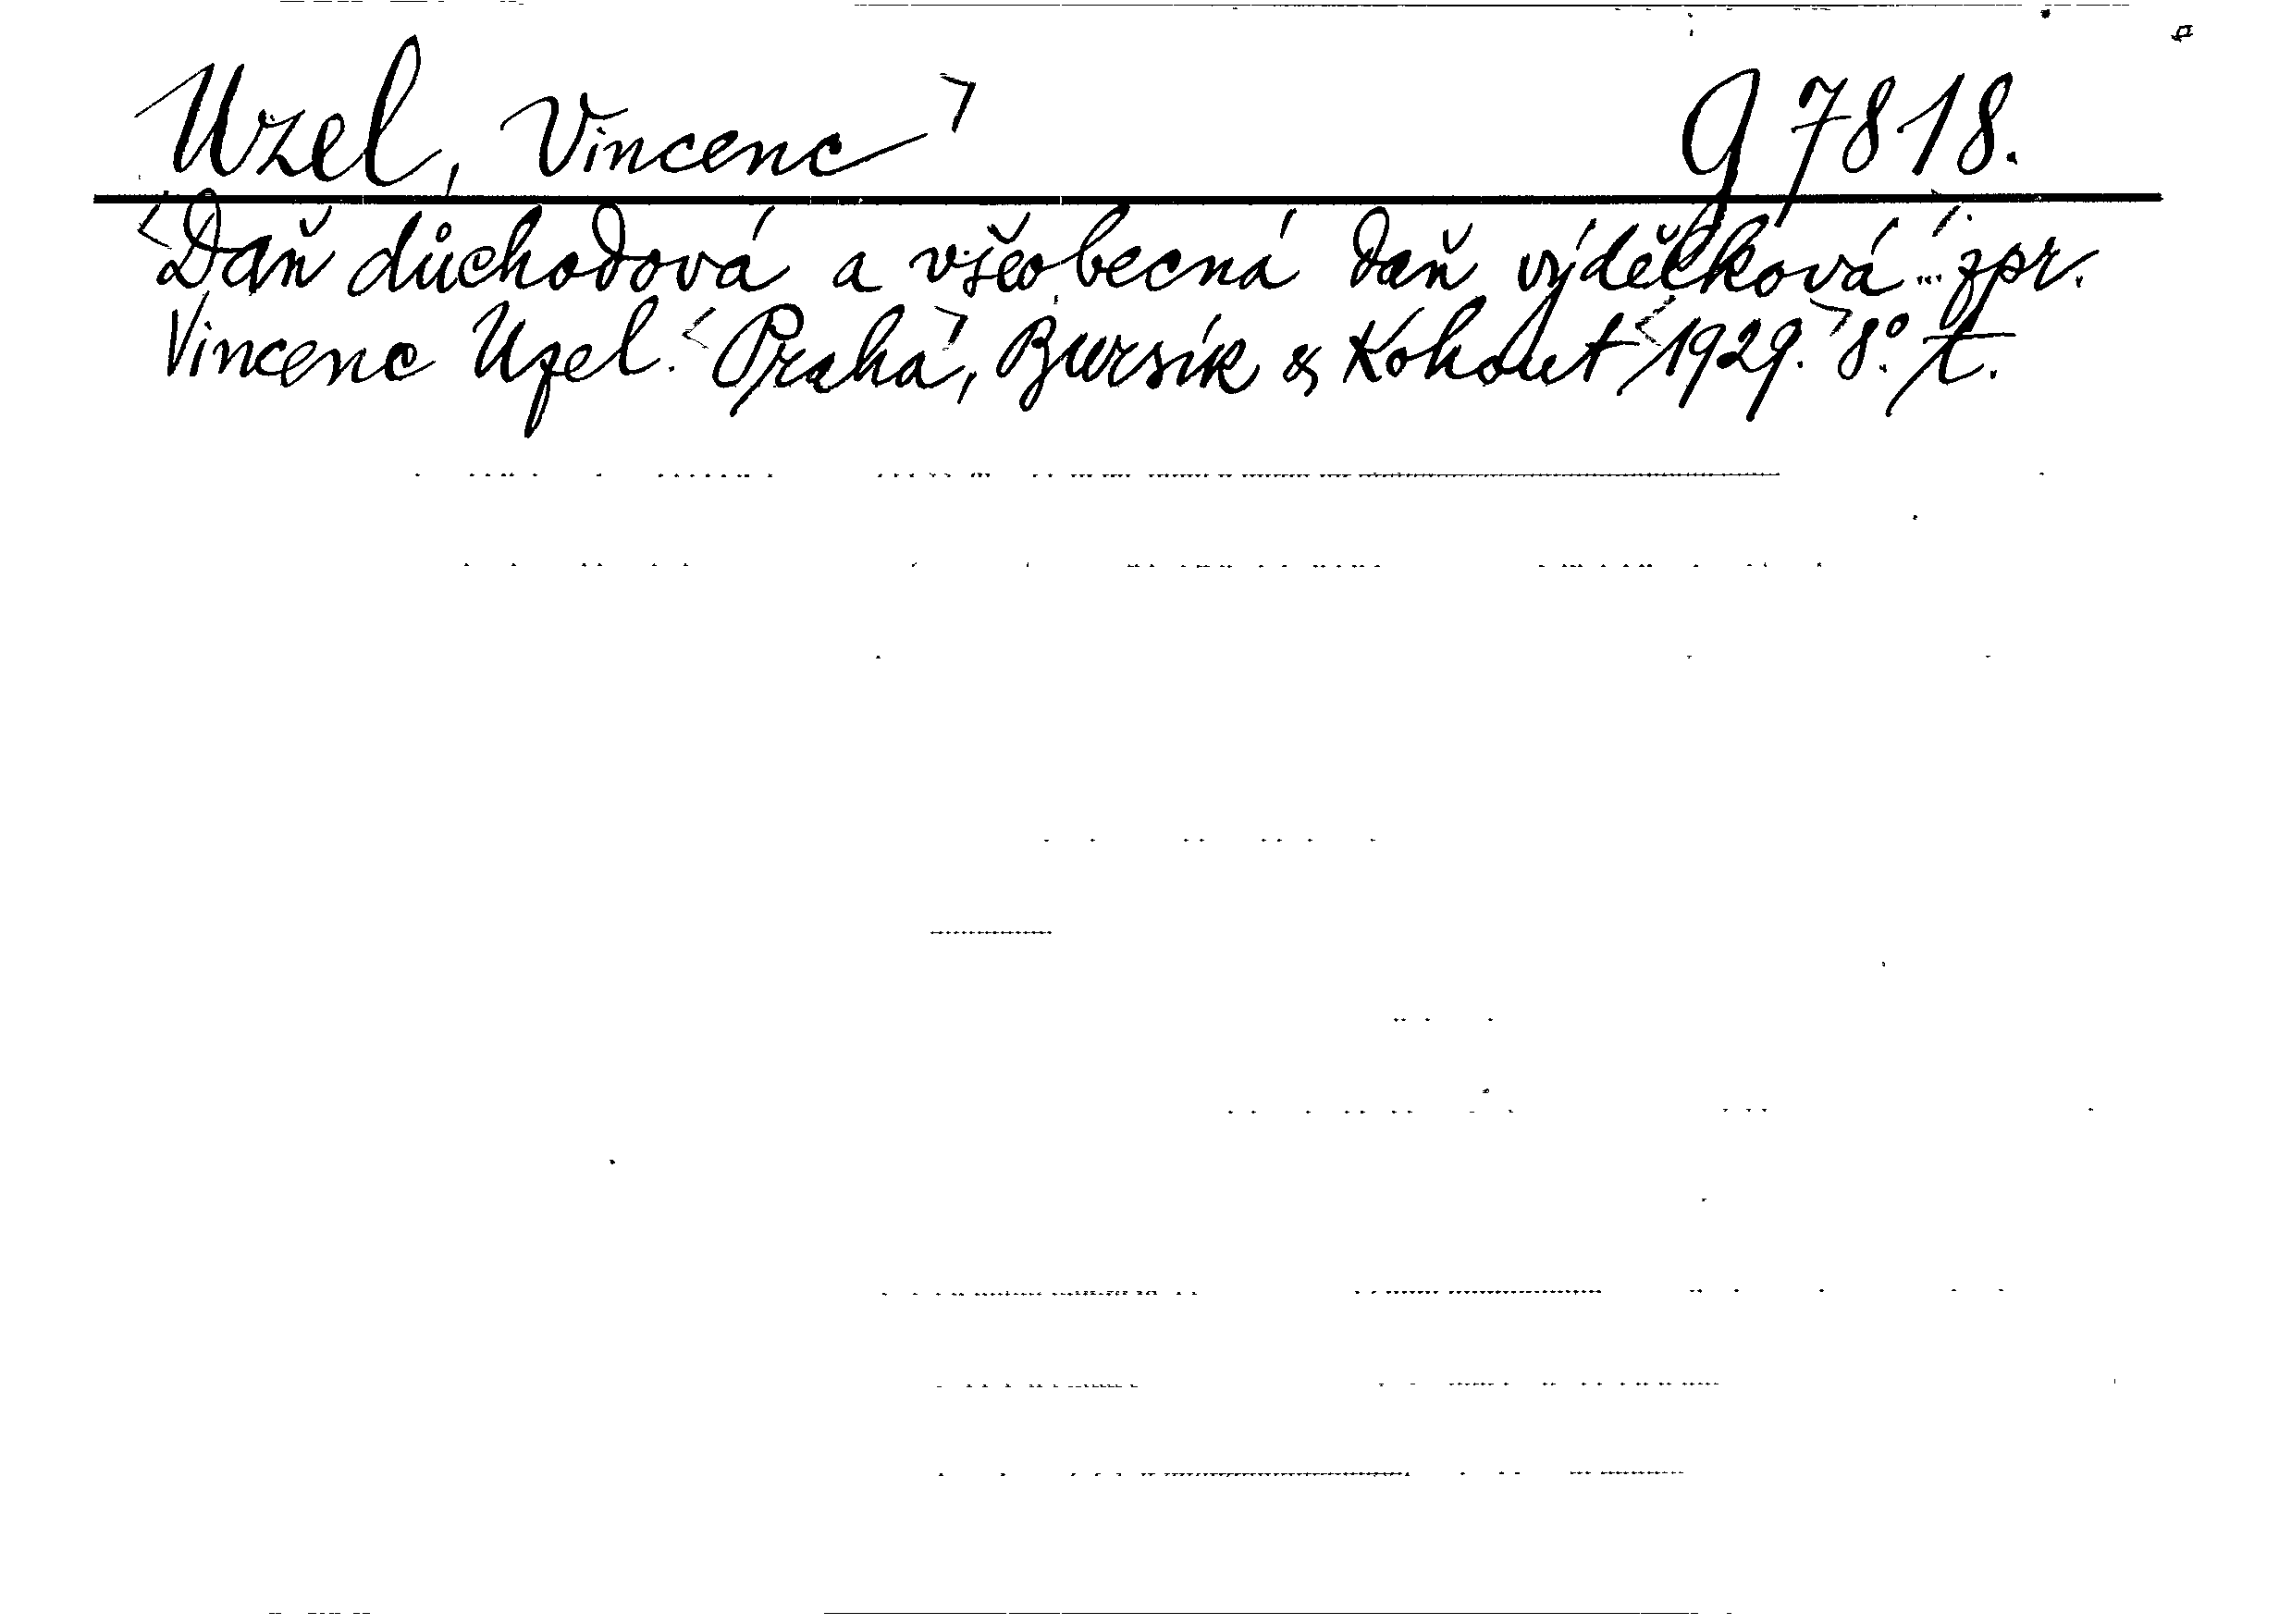 Uzel, Vincenc g 7818.
Daň důchodová a všeobecná daň výdělková ... zpr.
Vincenc Uzel. Praha, Bursík & Kohout 1929. 8°. t.